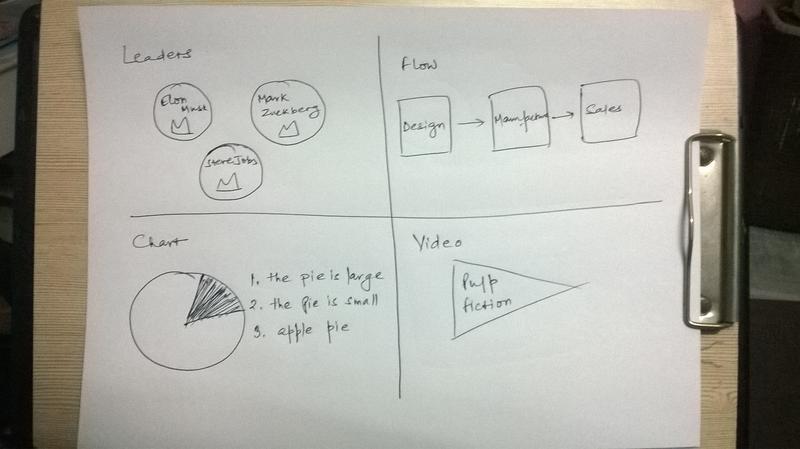 Leaders
Elon
Musk
Mark
Zuckberg
Steve Jobs
Flow
Design
Manufacture
Sales
Chart
1. the pie is large
2. the pie is small
3. apple pie
Video
Pulp
fiction